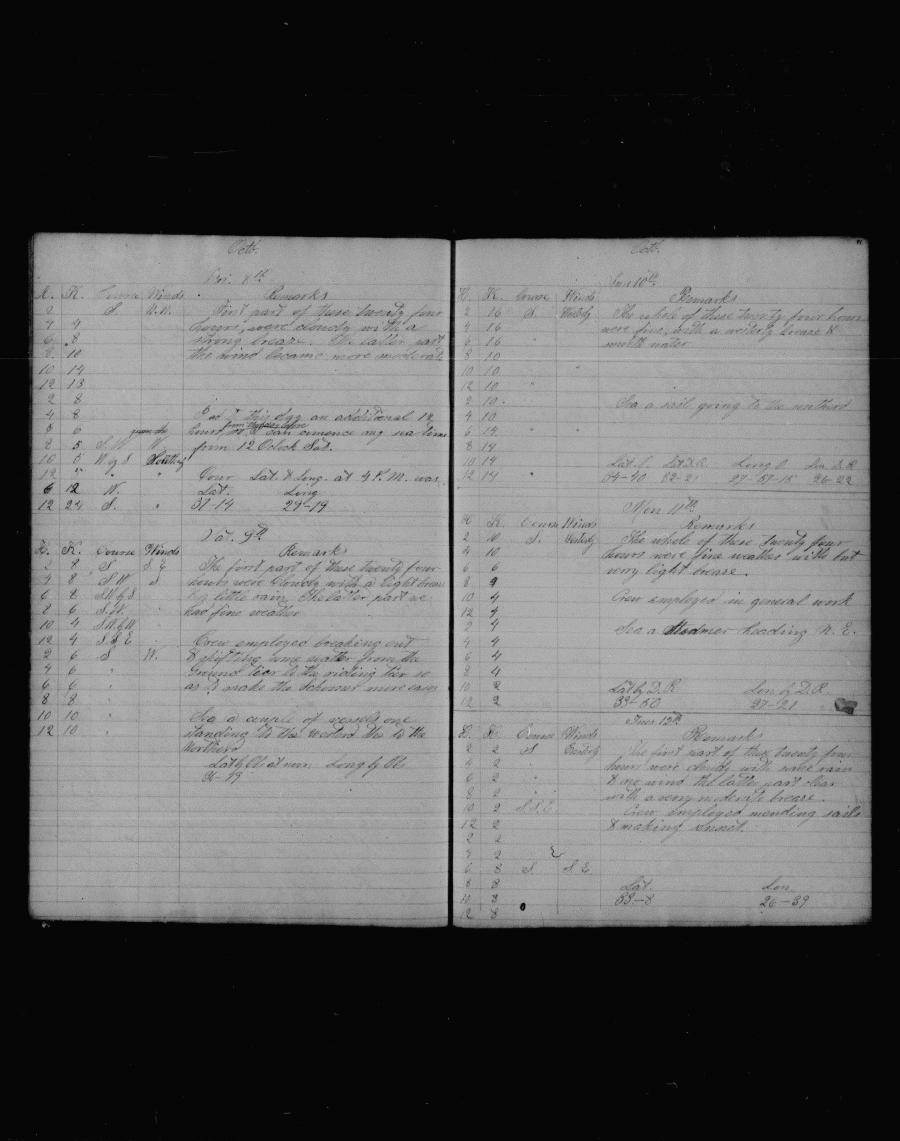 Octb.
Fri. 8th
H. K. Course Winds Remarks
2 S N.W. First part of these twenty four
4 4 hours, were cloudy with a
6 8 strong breaze. The latter part
8 10 the wind became more moderate
10 14
12 13
2 8
4 8 P at T this day an additional 12
from the
6 6 hours, so I can comence my sea time
8 5 S.W W. from 12 Oclock Sat.
10 5 W by S Southerly
12 " " " Our Lat. & Long. at 4 P.M. was
6 12 W. Lat. Long
12 24 S. " 37-14 29-19
Sat. 9th
H. K. Course Winds Remarks
2 8 S S.E The first part of these twenty four
4 8 S.W. S hours were Cloudy with a light breaze
6 8 S.W by S & little rain, The latter part we
8 6 S.W. had fine weather
10 4 S.W by W
12 4 S.S.E Crew employed breaking out
2 6 S W. & shifting some water from the
4 6 " ground tier to the riding tier so
6 6 " as to make the Schooner more easy
8 8 "
10 10 " Sea a couple of vessels one
12 10 " standing to the western the to the
Northerd
Lat by Ob at noon Long by Ob
36-19
Octb.
Sun 10th
H. K. Course Winds Remarks
2 16 S. Westerly The whole of these twenty four hours
4 16 were fine, with a westerly brease &
6 16 " smooth water
8 10
10 10 "
12 10 "
2 10 Sea a sail going to the northerd
4 10
6 14 " "
8 14
10 14 Lat. O. Lat D.R. Long O Lon D.R
12 14 " 34-40 32-21 27-57-15 26-22
Mon 11th
H K. Course Winds Remarks
2 10 S. Westerly The whole of these twenty four
4 10 hours were fine weather with but
6 6 very light brease.
8 9
10 4 Crew employed in general work
12 4
2 4 Sea a Stedmer heading N. E.
4 4
6 4
8 4
10 2 Lat by D.R Lon by D.R.
12 2 33-50 27-21
Tues 12th
H. K. Course Winds Remarks
2 2 S Easterly The first part of thes twenty four
4 2 hours were cloudy with some rain
6 2 " & no wind the latter part clear
8 2 " with a very moderate brease.
10 2 S.S.E. Crew employed mending sails
12 2 & making sennet.
2 2
4 2
6 8 S S.E
8 8 Lat. Lon
10 8 33-8 26-39
12 8